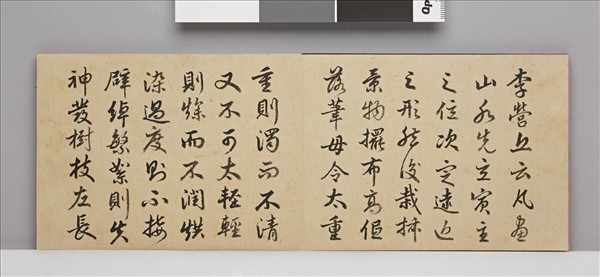 李營丘云凡畫
山水先立賓主
之位次定遠近
之形然後栽排
景物擺布高低
落筆毋令太重
重則濁而不清
又不可太輕輕
則燥而不潤烘
染過度則不接
綽繁絮則失
神發樹枝左長